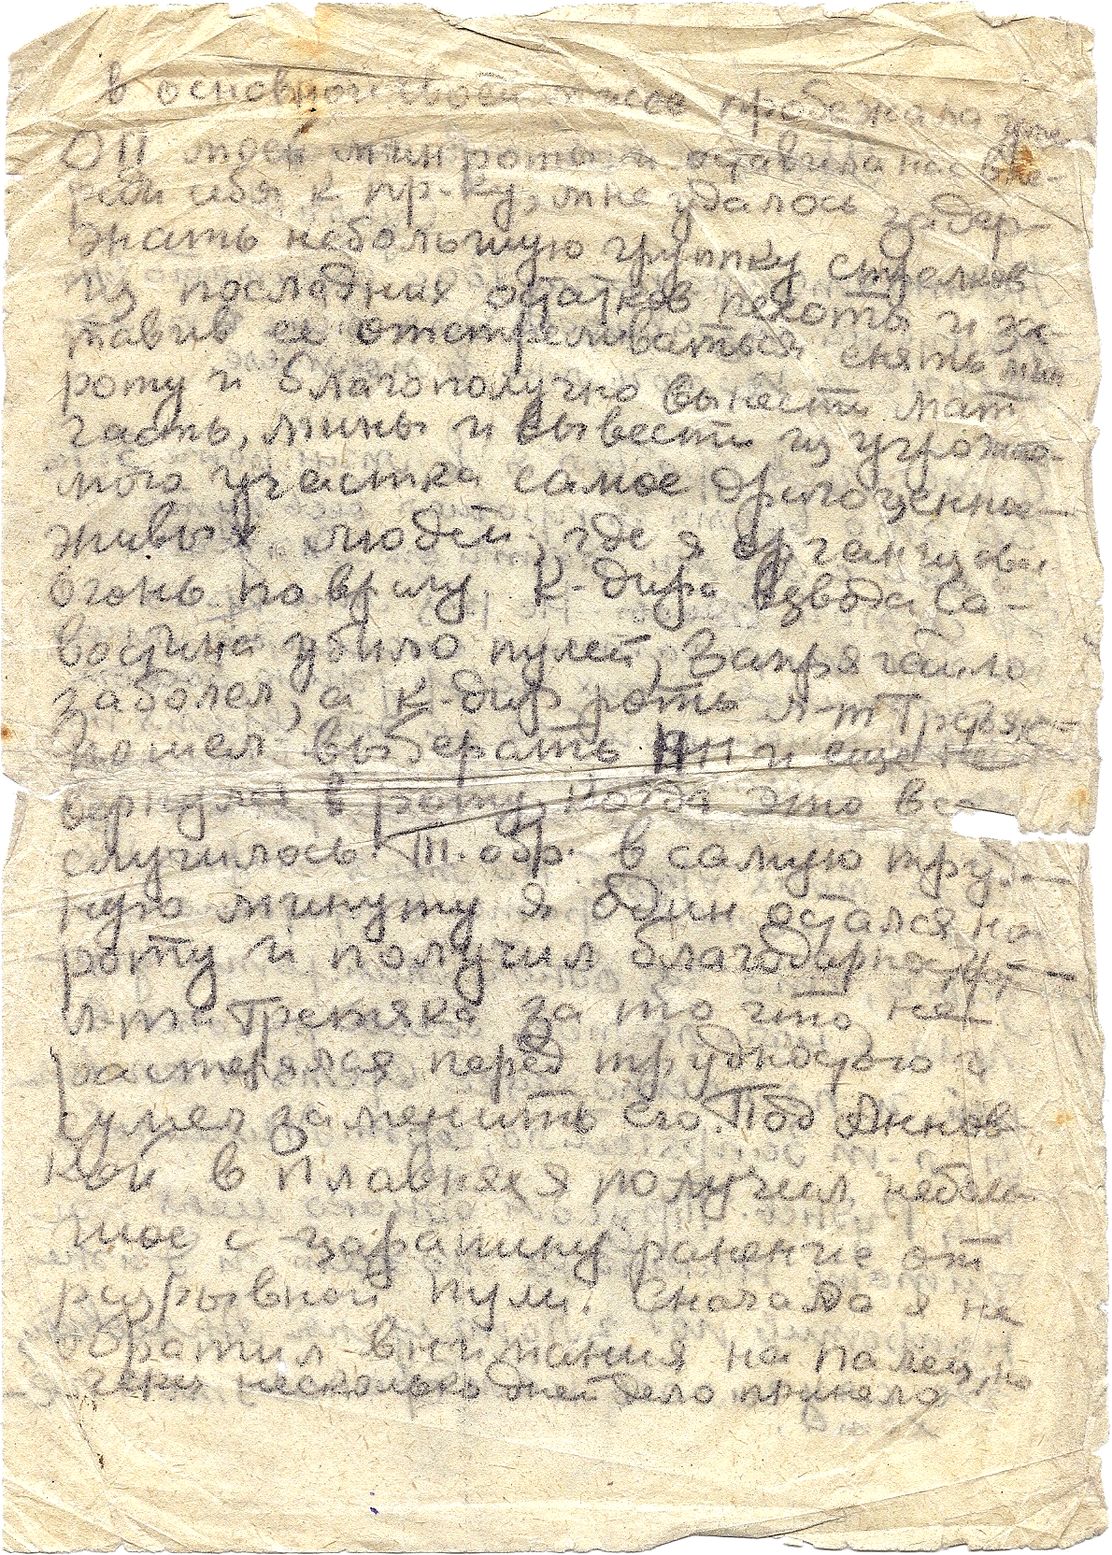 в основной своей массе пробежала уже
ОП моей мин роты и оставила нас впе-
реди себя к пр-ку, мне удалось задер-
жать небольшую группку стрелков
из последних остатков пехоты и зас-
тавив ее отстреливаться снять мин
роту и благополучно вынести мат
часть, мины и вывести из угрожае-
мого участка самое драгоценное—
живых людей, где я организовал
огонь по врагу. К-дира взвода Са-
востина убило пулей, Запрягайло
заболел, а к-дир роты л-т Третьяк-
пошел выберать НП и еще не
вернулся в роту, когда это все
случилось. Т. обр. в самую труд-
ную минуту я один остался на
роту и получил благодарность от
л-та Третьяка за то что не
растерялся перед трудностью и
сумел заменить его. Под Аннов-
кой в Плавнях я получил неболь
шое с царапину ранение от
разрывной пули. Сначала я не
обратил внимания на палец, но
через несколько дней дело приняло